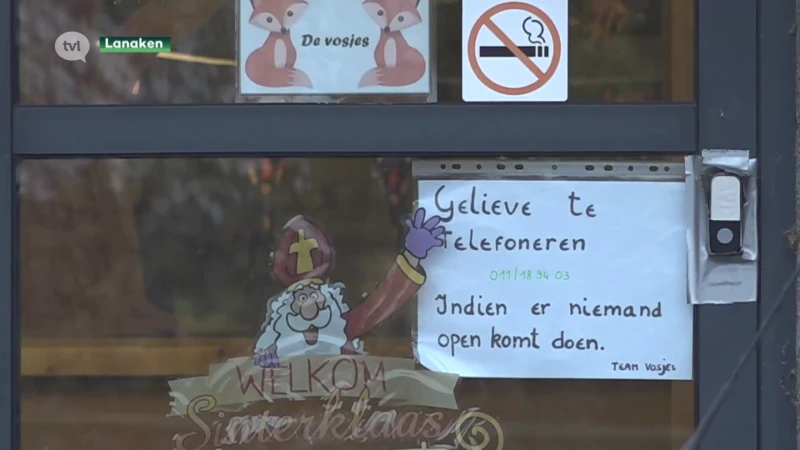 tvl
Lanaken
De vosjes
Gelieve te
Telefoneren
011/18 94 03
Indien er niemand
open komt doen.
TEAM VOSJES
WELKOM
Sinterklaas